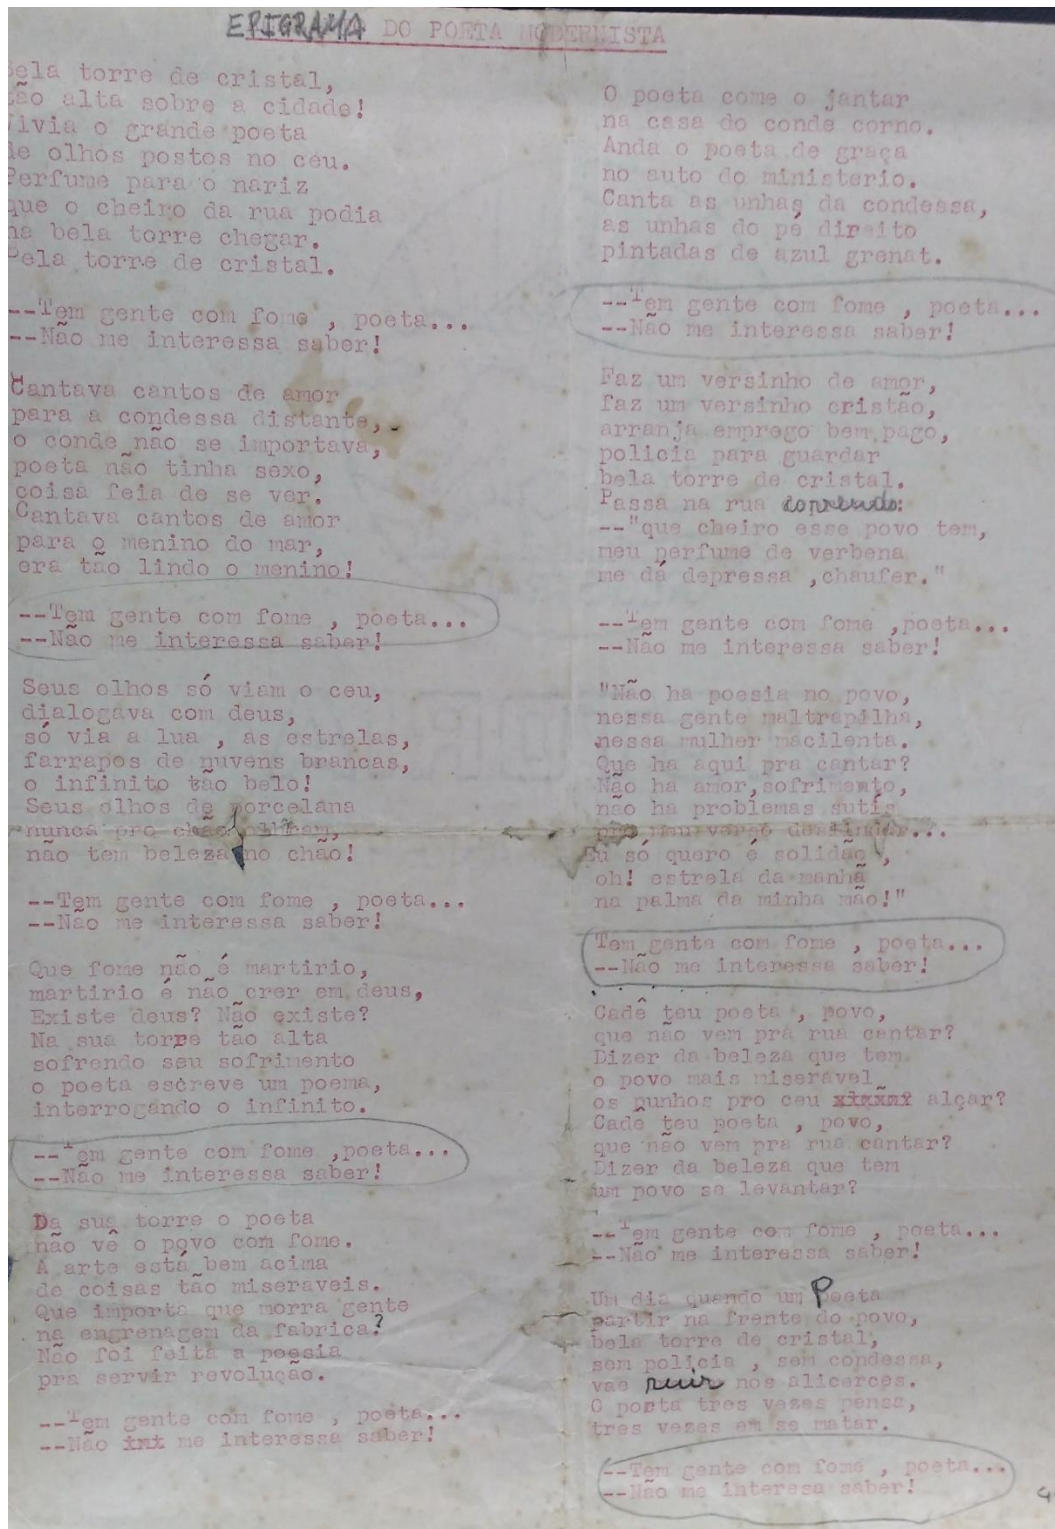 EPIGRAMA DO POETA MODERNISTA
Bela torre de cristal,
tão alta sobre a cidade!
Vivia o grande poeta
de olhos postos no ceu.
Perfume para o nariz
que o cheiro da rua podia
na bela torre chegar.
Bela torre de cristal.
--Tem gente com fome , poeta...
--Não me interessa saber!
Cantava cantos de amor
para a condessa distante,
o conde não se importava,
poeta não tinha sexo,
coisa feia de se ver.
Cantava cantos de amor
para o menino do mar,
era tão lindo o menino!
--Tem gente com fome , poeta...
--Não me interessa saber!
Seus olhos só viam o ceu,
dialogava com deus,
só via a lua , as estrelas,
farrapos de nuvens brancas,
o infinito tão belo!
Seus olhos de porcelana
nunca pro chão olham,
não tem beleza no chão!
--Tem gente com fome , poeta...
--Não me interessa saber!
Que fome não é martirio,
martirio é não crer em deus,
Existe deus? Não existe?
Na sua torre tão alta
sofrendo seu sofrimento
o poeta escreve um poema,
interrogando o infinito.
--Tem gente com fome ,poeta...
--Não me interessa saber!
Da sua torre o poeta
não vê o povo com fome.
A arte está bem acima
de coisas tão miseraveis.
Que importa que morra gente
na engrenagem da fabrica?
Não foi feita a poesia
pra servir revolução.
--Tem gente com fome , poeta...
--Não me interessa saber!
O poeta come o jantar
na casa do conde corno.
Anda o poeta de graça
no auto do ministerio.
Canta as unhas da condessa,
as unhas do pé direito
pintadas de azul grenat.
--Tem gente com fome , poeta...
--Não me interessa saber!
Faz um versinho de amor,
faz um versinho cristão,
arranja emprego bem pago,
policia para guardar
bela torre de cristal.
Passa na rua correndo:
--"que cheiro esse povo tem,
meu perfume de verbena
me dá depressa ,chaufer."
--Tem gente com fome ,poeta...
--Não me interessa saber!
"Não ha poesia no povo,
nessa gente maltrapilha,
nessa mulher macilenta.
Que ha aqui pra cantar?
Não ha amor,sofrimento,
não ha problemas sutis
pro meu verso desfiar...
Eu só quero é solidão ,
oh! estrela da manhã
na palma da minha mão!"
Tem gente com fome , poeta...
--Não me interessa saber!
Cadê teu poeta , povo,
que não vem prá rua cantar?
Dizer da beleza que tem
o povo mais miseravel
os punhos pro ceu alçar?
Cadê teu poeta , povo,
que não vem pra rua cantar?
Dizer da beleza que tem
um povo se levantar?
--Tem gente com fome , poeta...
--Não me interessa saber!
Um dia quando um Poeta
partir na frente do povo,
bela torre de cristal,
sem policia , sem condessa,
vae ruir nos alicerces.
O poeta tres vezes pensa,
tres vezes em se matar.
--Tem gente com fome , poeta...
--Não me interessa saber!